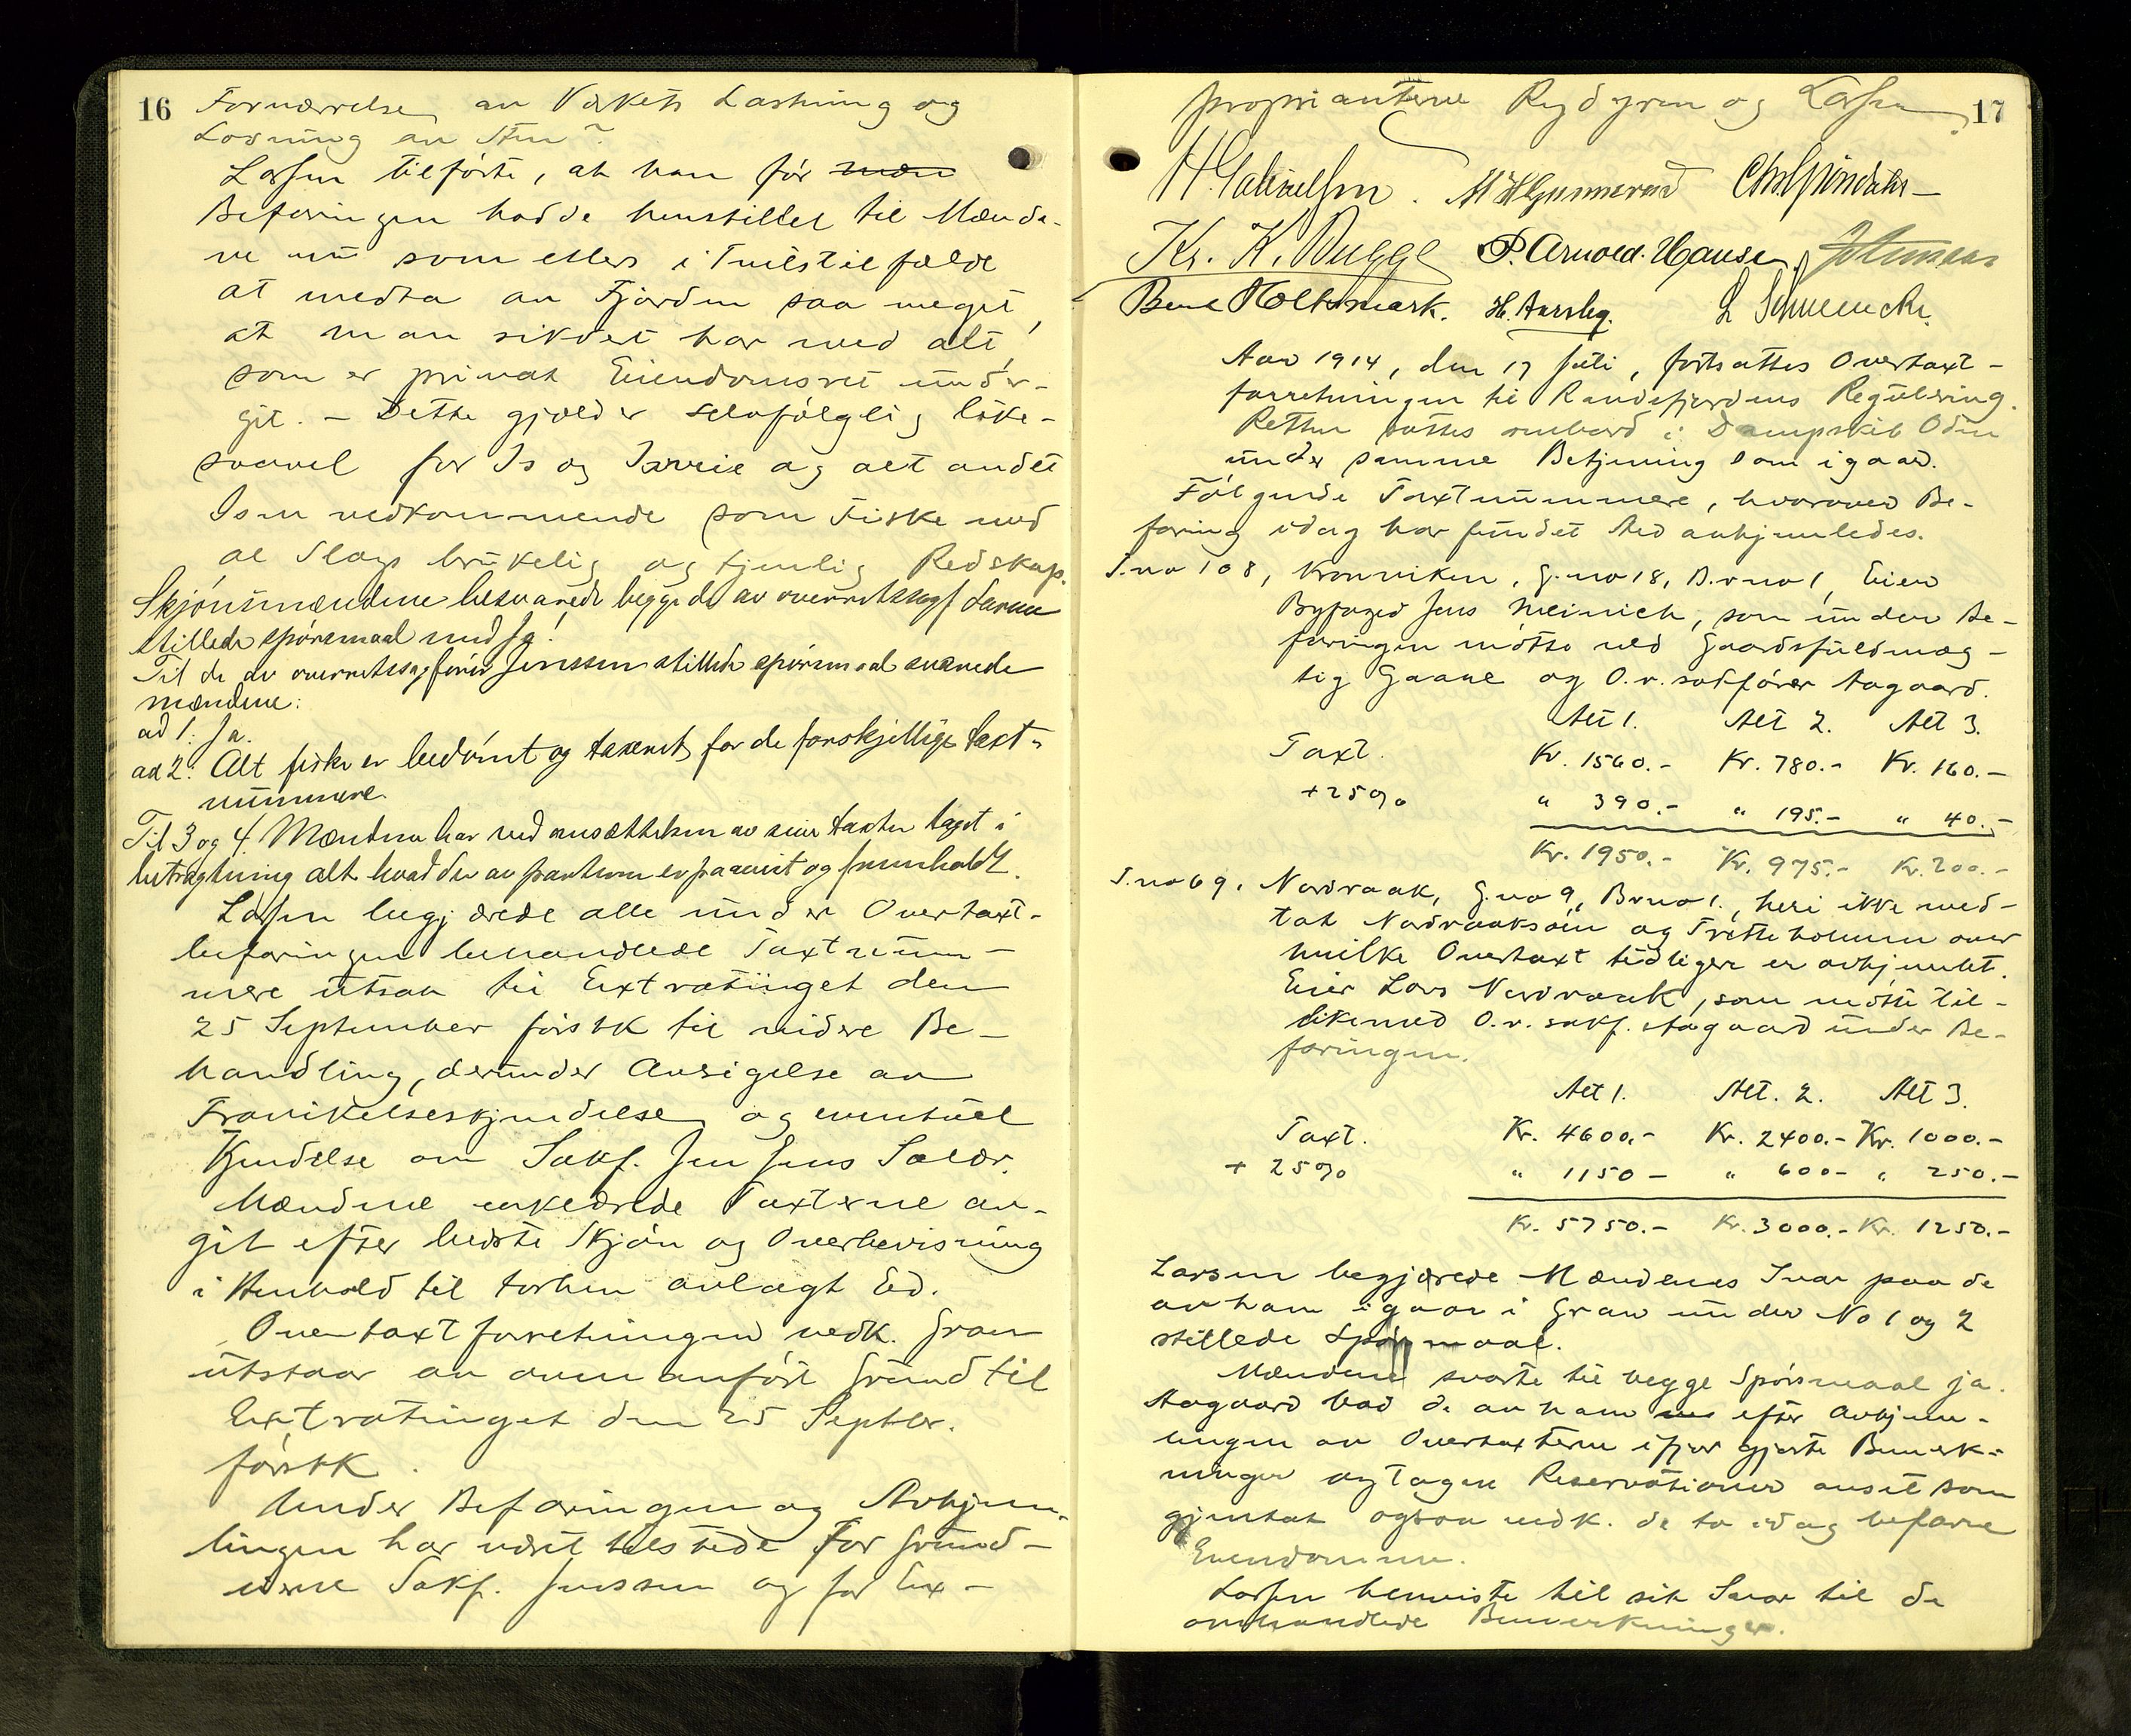 16
Fornærmelse av Værkets Lastning og
Losning av Sten?
Larsen tilførte, at han før mæn
Befaringen hadde henstillet til Mænde-
ne nu som ellers i Tvilstilfælde
at medta av Fjorden saa meget,
at man sikkert har med alt,
som er privat Eiendomsret under-
git. – Dette gjælder selvfølgelig like-
saavel for Is og
og alt andet
Isen vedkommende som Fiske med
al Slags brukelig og tjenlig Redskap.
Skjønsmændene besvarede begge de av overretssagf Larsen
stillede spørsmaal med Ja!
Til de av overretssagfører Jenssen stillede spørsmaal svarede
mændene:
ad 1: Ja.
ad 2: Alt fiske er bedømt og taxeret for de forskjellige taxt-
nummere.
Til 3 og 4. Mændene har ved ansættelsen av sine taxter taget i
betragtning alt hvad der av parterne er paavist og fremholdt.
Larsen begjærede alle under Overtaxt-
befaringen behandlede Taxtnum-
mere utsat til Extratinget den
25 September førstk til videre Be-
handling, derunder Avsigelse av
Fravikelseskjendelse og eventuel
Kjendelse om Sakf. Jensens Salær.
Mændene erklærede Taxterne av-
git efter bedste Skjøn og Overbevisning
i Henhold til forhen avlagt Ed.
Overtaxtforretningen vedk. Gran
utstaar av ovenanført Grund til
Extratinget den 25 Septbr.
førstk.
Under Befaringen og Avhjem-
lingen har været tilstede for Grund-
eierne Sakf. Jenssen og for Ex-
17
proprianterne Rydgren og Larsen.
H. Gabrielsen. M H Gunnerud Chr Gjøndahl
Kr. K. Bugge P. Arnold. Hansen.
Bent Holtsmark. H. Aarsby. L Schwencke.
Aar 1914, den 17 Juli, fortsattes Overtaxt-
forretningen til Randsfjordens Regulering.
Retten sattes ombord i Dampskib Odin
under samme Betjening som igaar.
Følgende Taxtnummere, hvorover Be-
faring idag har fundet Sted avhjemledes.
T.no 108, Kronviken, G.no 18, B.r no 1, Eier
Byfoged Jens Meinich, som under Be-
faringen møtte ved Gaardsfuldmæg-
tig Gaave og O.r.sakfører Aagaard.
Alt 1. Alt 2. Alt 3.
Taxt. Kr. 1560.- Kr. 780.- Kr. 160.-
+25% " 390.- " 195.- " 40.-
Kr. 1950.- Kr. 975.- Kr. 200.-
T.no 69. Nordraak, G.no 9, Brno 1, heri ikke med-
tat Nordraaksøen og Tretteholmen over
hvilke Overtaxt tidligere er avhjemlet.
Eier Lars Nordraak, som møtte til-
likemed O.r. sakf. Aagaard under Be-
faringen.
Alt 1. Alt. 2. Alt 3.
Taxt. Kr. 4600.- Kr. 2400.- Kr. 1000.-
+ 25% " 1150 - " 600 - " 250.-
Kr. 5750.- Kr. 3000.- Kr. 1250.-
Larsen begjærede Mændenes Svar paa de
av ham igaar i Gran under No 1 og 2
stillede Spørsmaal.
Mændene svarte til begge Spørsmaal ja.
Aagaard bad de av ham efter Avhjem-
lingen av Overtaxterne ifjor gjorte Bemerk-
ninger og tagne Reservationer anset som
gjentat ogsaa vedk. de to idag befarne
Eiendomme.
Larsen henviste til sit Svar til de
omhandlede Bemerkninger.